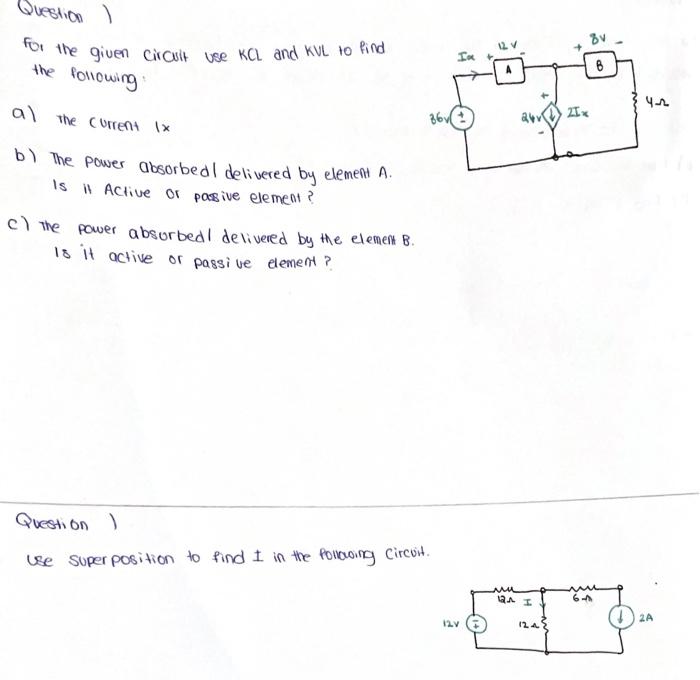 Question 1
For the given circuit use KCL and KVL to find
the following:
a) The current Ix
b) The power absorbed/ delivered by element A.
Is it Active or passive element?
c) The power absorbed/ delivered by the element B.
Is it active or passive element?
Ix + 12 V -
A
+ 8V -
B
36v
+
-
+
24v
-
2Ix
4Ω
Question 1
Use superposition to find I in the following circuit.
12Ω
I
6Ω
12V
12Ω
2A